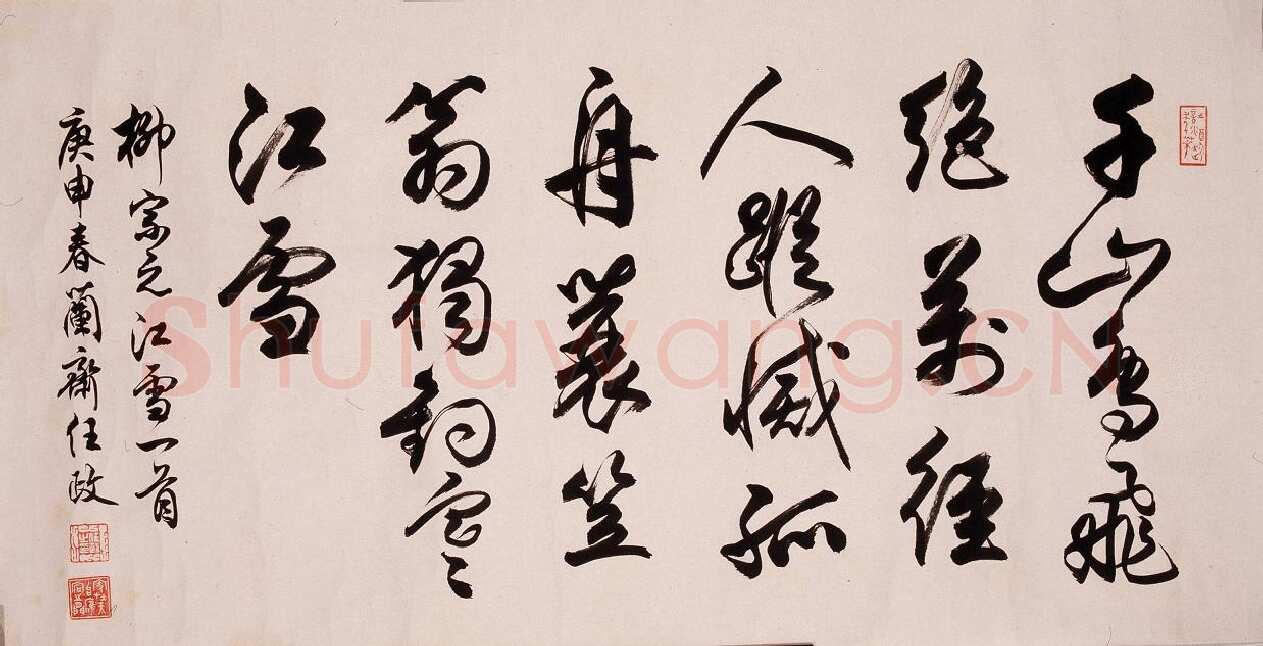 千山鳥飛
絕萬徑
人蹤滅孤
舟蓑笠
翁獨釣寒
江雪
柳宗元江雪一首
庚申春蘭齋任政
Shufawang.CN